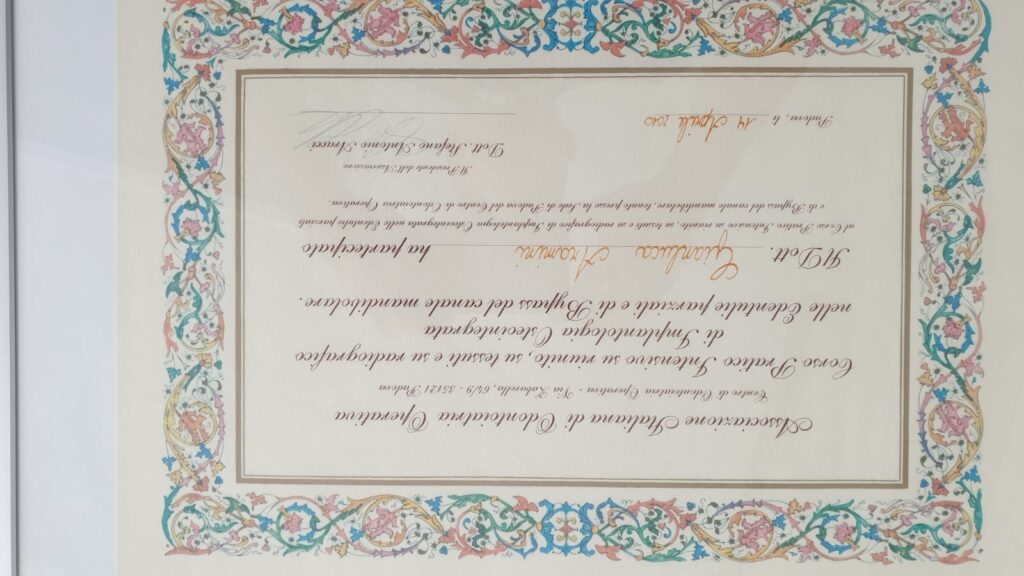 Associazione Italiana di Odontoiatria Operativa
Centro di Odontoiatria Operativa - Via Zabarella, 64/9 - 35121 Padova
Corso Pratico Intensivo su riunito, su tessuti e su radiografico
di Implantologia Osteointegrata
nelle Edentulie parziali e di Bypass del canale mandibolare.
Il Dott. Gianluca Aramini ha partecipato
al Corso Pratico Intensivo su riunito, su tessuti e su radiografico di Implantologia Osteointegrata nelle Edentulie parziali
e di Bypass del canale mandibolare, tenuto presso la Sede di Padova del Centro di Odontoiatria Operativa.
Il Presidente dell'Associazione
Dott. Stefano Antonio Aracci
Padova, li, 14 Aprile 2010